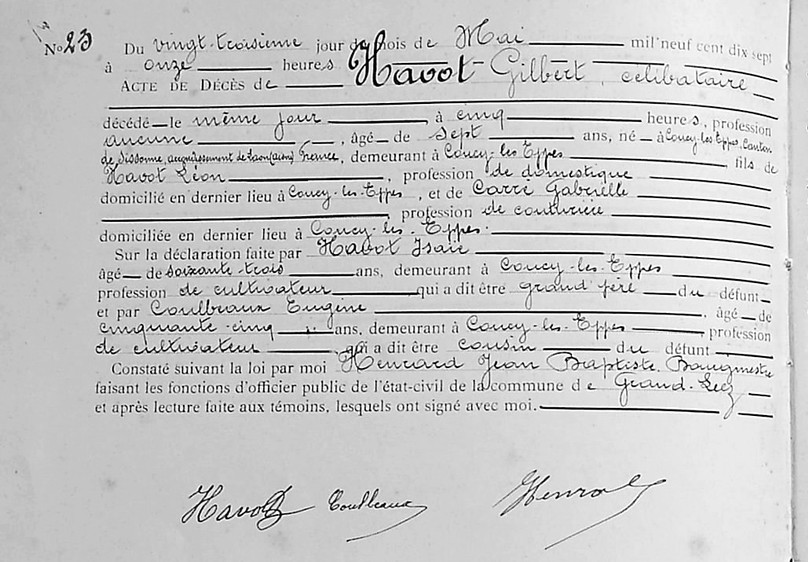 No 23 Du vingt-troisième jour du mois de Mai mil neuf cent dix sept
à onze heures Havot Gilbert, célibataire
ACTE DE DÉCÈS de
décédé le même jour à cinq heures, profession
aucune, âgé de sept ans, né à Coucy-les-Eppes, Canton
de Sissonne, arrondissement de Laon (Aisne) France, demeurant à Coucy-les-Eppes fils de
Havot Léon, profession de domestique
domicilié en dernier lieu à Coucy-les-Eppes, et de Carré Gabrielle
profession de couturière
domiciliée en dernier lieu à Coucy-les-Eppes.
Sur la déclaration faite par Havot Isaïe
âgé de soixante-trois ans, demeurant à Coucy-les-Eppes
profession de cultivateur qui a dit être grand père du défunt
et par Coulbeaux Eugène, âgé de
cinquante-cinq ans, demeurant à Coucy-les-Eppes profession
de cultivateur, qui a dit être cousin du défunt
Constaté suivant la loi par moi Henrard Jean Baptiste, Bourgmestre
faisant les fonctions d'officier public de l'état-civil de la commune de Grand-Leez
et après lecture faite aux témoins, lesquels ont signé avec moi.
Havot Coulbeaux Henrard